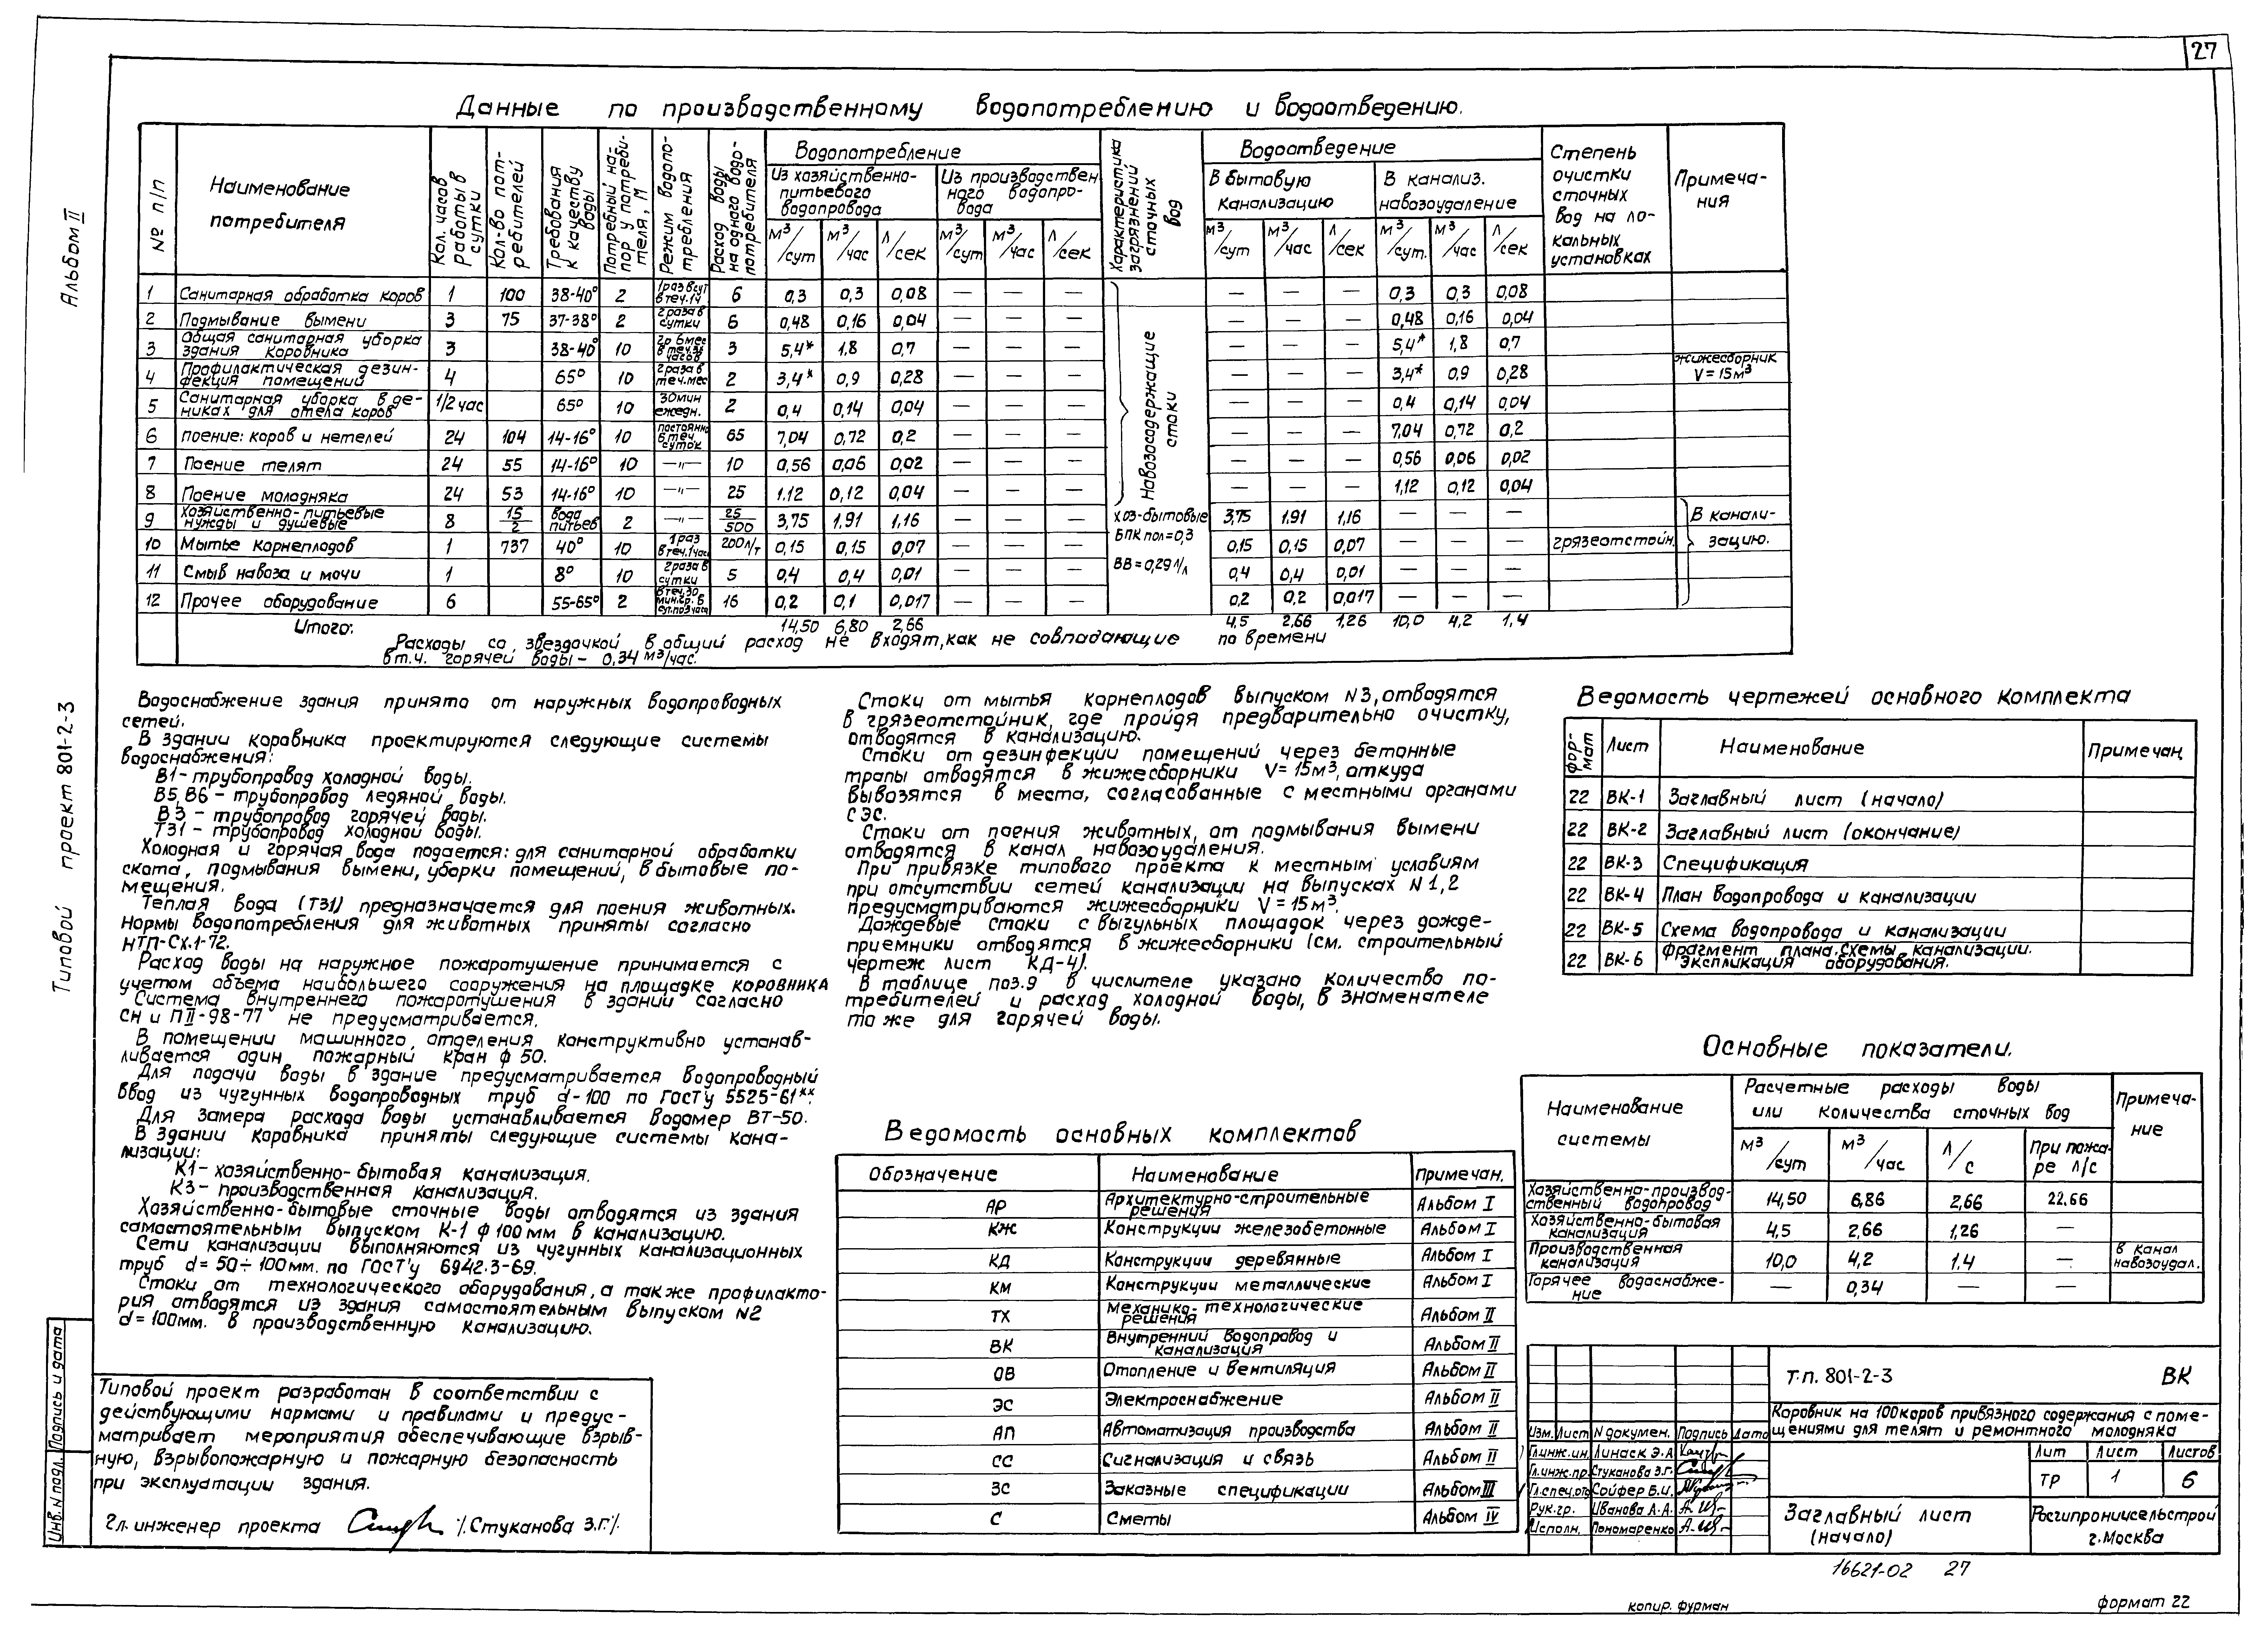 27
Альбом II
Типовой проект 801-2-3
Данные по производственному водопотреблению и водоотведению.
№ п/п
Наименование потребителя
Кол. часов работы в сутки
Кол-во пот-ребителей
Требования к качеству воды
Потребный на-пор у потреби-теля, М
Режим водопо-требления
Расход воды на одного водо-потребителя
Водопотребление
Из хозяйственно-питьевого водопровода
Из производствен-ного водопро-вода
м³/сут м³/час л/сек м³/сут м³/час л/сек
Характеристика загрязнений сточных вод
Водоотведение
В бытовую канализацию
В канализ. навозоудаление
м³/сут м³/час л/сек м³/сут. м³/час л/сек
Степень очистки сточных вод на ло-кальных установках
Примеча-ния
1 Санитарная обработка коров 1 100 38-40° 2 1раз в сут в теч.1ч 6 0,3 0,3 0,08 — — — — — — 0,3 0,3 0,08
2 Подмывание вымени 3 75 37-38° 2 2раза в сутки 6 0,48 0,16 0,04 — — — — — — 0,48 0,16 0,04
3 Общая санитарная уборка здания коровника 3 38-40° 10 3 5,4* 1,8 0,7 — — — — — — 5,4* 1,8 0,7
4 Профилактическая дезин-фекция помещений 4 65° 10 2раза в теч.мес 2 3,4* 0,9 0,28 — — — — — — 3,4* 0,9 0,28 жижесборник V=15м³
5 Санитарная уборка в де-никах для отела коров 1/2 час 65° 10 30мин ежедн. 2 0,4 0,14 0,04 — — — — — — 0,4 0,14 0,04
6 поение: коров и нетелей 24 104 14-16° 10 постоянно в теч. суток 65 7,04 0,72 0,2 — — — — — — 7,04 0,72 0,2
7 Поение телят 24 55 14-16° 10 —"— 10 0,56 0,06 0,02 — — — — — — 0,56 0,06 0,02
8 Поение молодняка 24 53 14-16° 10 —"— 25 1.12 0,12 0,04 — — — — — — 1,12 0,12 0,04
Навозосодержащие стоки
9 Хозяйственно-питьевые нужды и душевые 8 15/2 вода питьев 2 —"— 25/500 3,75 1,91 1,16 — — — хоз-бытовые 3,75 1.91 1,16 — — —
10 Мытье корнеплодов 1 737 40° 10 1раз в теч.1час 200л/т 0,15 0,15 0,07 — — — БПК пол=0,3 0,15 0,15 0,07 — — — грязеотстойн.
11 Смыв навоза и мочи 1 8° 10 2раза в сутки 5 0,4 0,4 0,01 — — — ВВ=0,29 г/л 0,4 0,4 0,01 — — —
12 Прочее оборудование 6 55-65° 2 16 0,2 0,1 0,017 — — — 0,2 0,2 0,017 — — —
В канали-зацию.
Итого: 14,50 6,80 2,66 4,5 2,66 1,26 10,0 4,2 1,4
Расходы со звездочкой в общий расход не входят, как не совпадающие по времени
в т.ч. горячей воды – 0,34 м³/час.
Водоснабжение здания принято от наружных водопроводных
сетей.
В здании коровника проектируются следующие системы
водоснабжения:
В1-трубопровод холодной воды.
В5, В6 – трубопровод ледяной воды.
В3 – трубопровод горячей воды.
Т31 – трубопровод холодной воды.
Холодная и горячая вода подается: для санитарной обработки
скота, подмывания вымени, уборки помещений, в бытовые по-
мещения.
Теплая вода (Т31) предназначается для поения животных.
Нормы водопотребления для животных приняты согласно
НТП-Сх.1-72.
Расход воды на наружное пожаротушение принимается с
учетом объема наибольшего сооружения на площадке коровника
Система внутреннего пожаротушения в здании согласно
СН и П II-98-77 не предусматривается.
В помещении машинного отделения конструктивно устанав-
ливается один пожарный кран ф 50.
Для подачи воды в здание предусматривается водопроводный
ввод из чугунных водопроводных труб d-100 по ГОСТу 5525-61**.
Для замера расхода воды устанавливается водомер ВТ-50.
В здании коровника приняты следующие системы кана-
лизации:
К1- хозяйственно-бытовая канализация.
К3- производственная канализация.
Хозяйственно-бытовые сточные воды отводятся из здания
самостоятельным выпуском К-1 ф 100 мм в канализацию.
Сети канализации выполняются из чугунных канализационных
труб d=50÷100мм. по ГОСТ'у 6942.3-69.
Стоки от технологического оборудования, а также профилакто-
рия отводятся из здания самостоятельным выпуском №2
d=100мм. в производственную канализацию.
Стоки от мытья корнеплодов выпуском N3, отводятся
в грязеотстойник, где пройдя предварительно очистку,
отводятся в канализацию.
Стоки от дезинфекции помещений через бетонные
трапы отводятся в жижесборники V=15м³, откуда
вывозятся в места, согласованные с местными органами
СЭС.
Стоки от поения животных, от подмывания вымени
отводятся в канал навозоудаления.
При привязке типового проекта к местным условиям
при отсутствии сетей канализации на выпусках N1,2
предусматриваются жижесборники V=15м³.
Дождевые стоки с выгульных площадок через дожде-
приемники отводятся в жижесборники (см. строительный
чертеж лист КД-4).
В таблице поз.9 в числителе указано количество по-
требителей и расход холодной воды, в знаменателе
то же для горячей воды.
Ведомость чертежей основного комплекта
фор-мат Лист Наименование Примечан.
22 ВК-1 Заглавный лист (начало)
22 ВК-2 Заглавный лист (окончание)
22 ВК-3 Спецификация
22 ВК-4 План водопровода и канализации
22 ВК-5 Схема водопровода и канализации
22 ВК-6 Фрагмент плана, схемы канализации. Экспликация оборудования.
Основные показатели.
Наименование системы
Расчетные расходы воды или количества сточных вод
Примеча-ние
м³/сут м³/час л/с При пожа-ре л/с
Хозяйственно-производ-ственный водопровод 14,50 6,86 2,66 22.66
Хозяйственно-бытовая канализация 4,5 2,66 1,26 —
Производственная канализация 10,0 4,2 1.4 — в канал навозоудал.
Горячее водоснабже-ние — 0,34 — —
Ведомость основных комплектов
Обозначение Наименование Примечан.
АР Архитектурно-строительные решения Альбом I
КЖ Конструкции железобетонные Альбом I
КД Конструкции деревянные Альбом I
КМ Конструкции металлические Альбом I
ТХ Механико-технологические решения Альбом II
ВК Внутренний водопровод и канализация Альбом II
ОВ Отопление и вентиляция Альбом II
ЭС Электроснабжение Альбом II
АП Автоматизация производства Альбом II
СС Сигнализация и связь Альбом II
ЗС Заказные спецификации Альбом III
С Сметы Альбом IV
Типовой проект разработан в соответствии с
действующими нормами и правилами и предус-
матривает мероприятия обеспечивающие взрыв-
ную, взрывопожарную и пожарную безопасность
при эксплуатации здания.
Гл. инженер проекта /Стуканова З.Г./.
Инв. N подл. Подпись и дата
Т.п. 801-2-3 ВК
Коровник на 100коров привязного содержания с поме-
щениями для телят и ремонтного молодняка
Изм. Лист N докумен. Подпись Дата
Гл.инж.ин. Линаск Э.А
Гл.инж.пр. Стуканова З.Г.
Гл.спец.отд Сойфер Б.И.
Рук.гр. Иванова А.А.
Исполн. Пономаренко
Лит Лист Листов
ТР 1 6
Заглавный лист
(начало)
Росгипрониисельстрой
г.Москва
16621-02 27
копир. фурман
формат 22